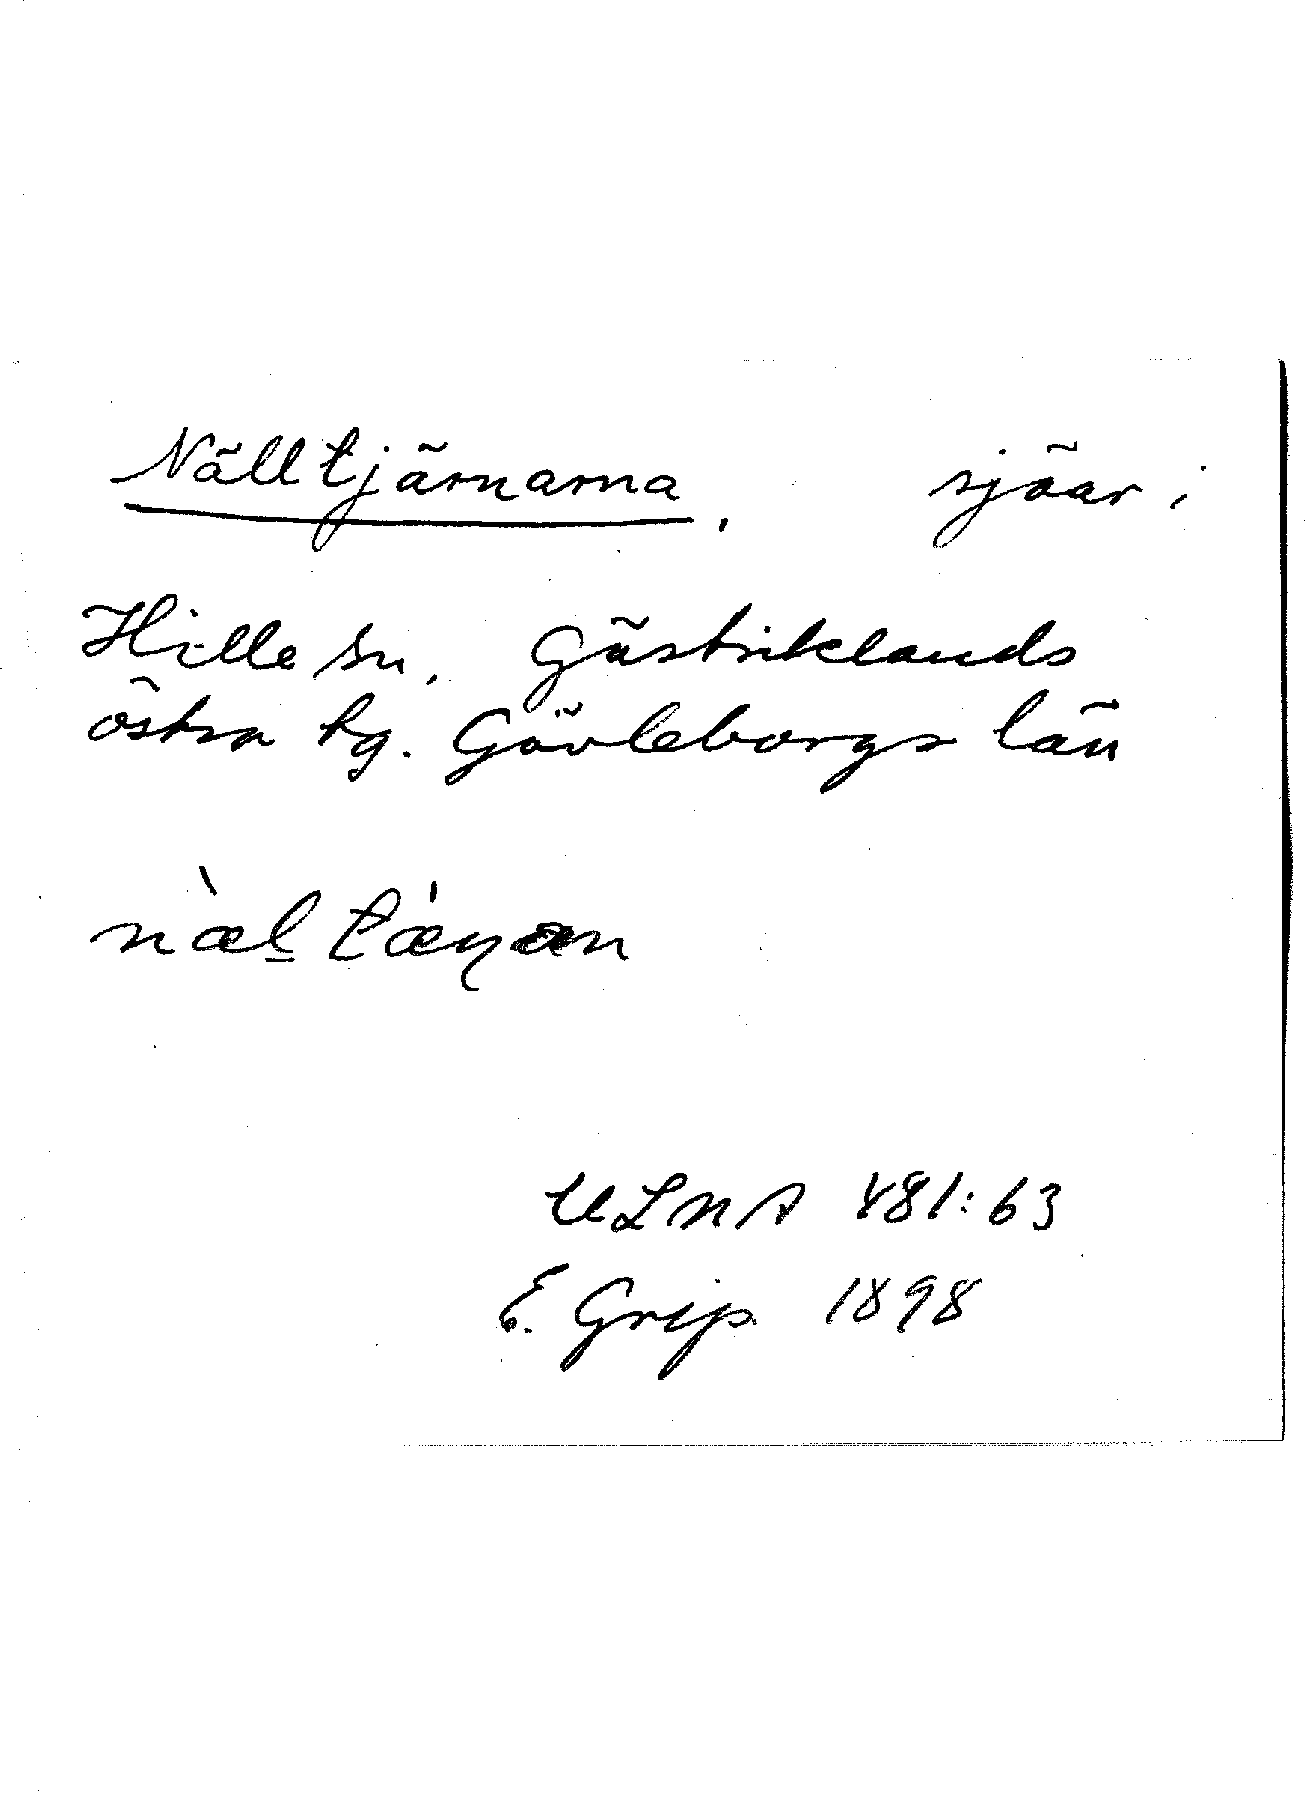 Nälltjärnarna, sjöar i
Hille sn, Gästriklands
östra tg. Gävleborgs län
næ̀l̠ tǽɳan
ULMA 481:63
E. Grip 1898